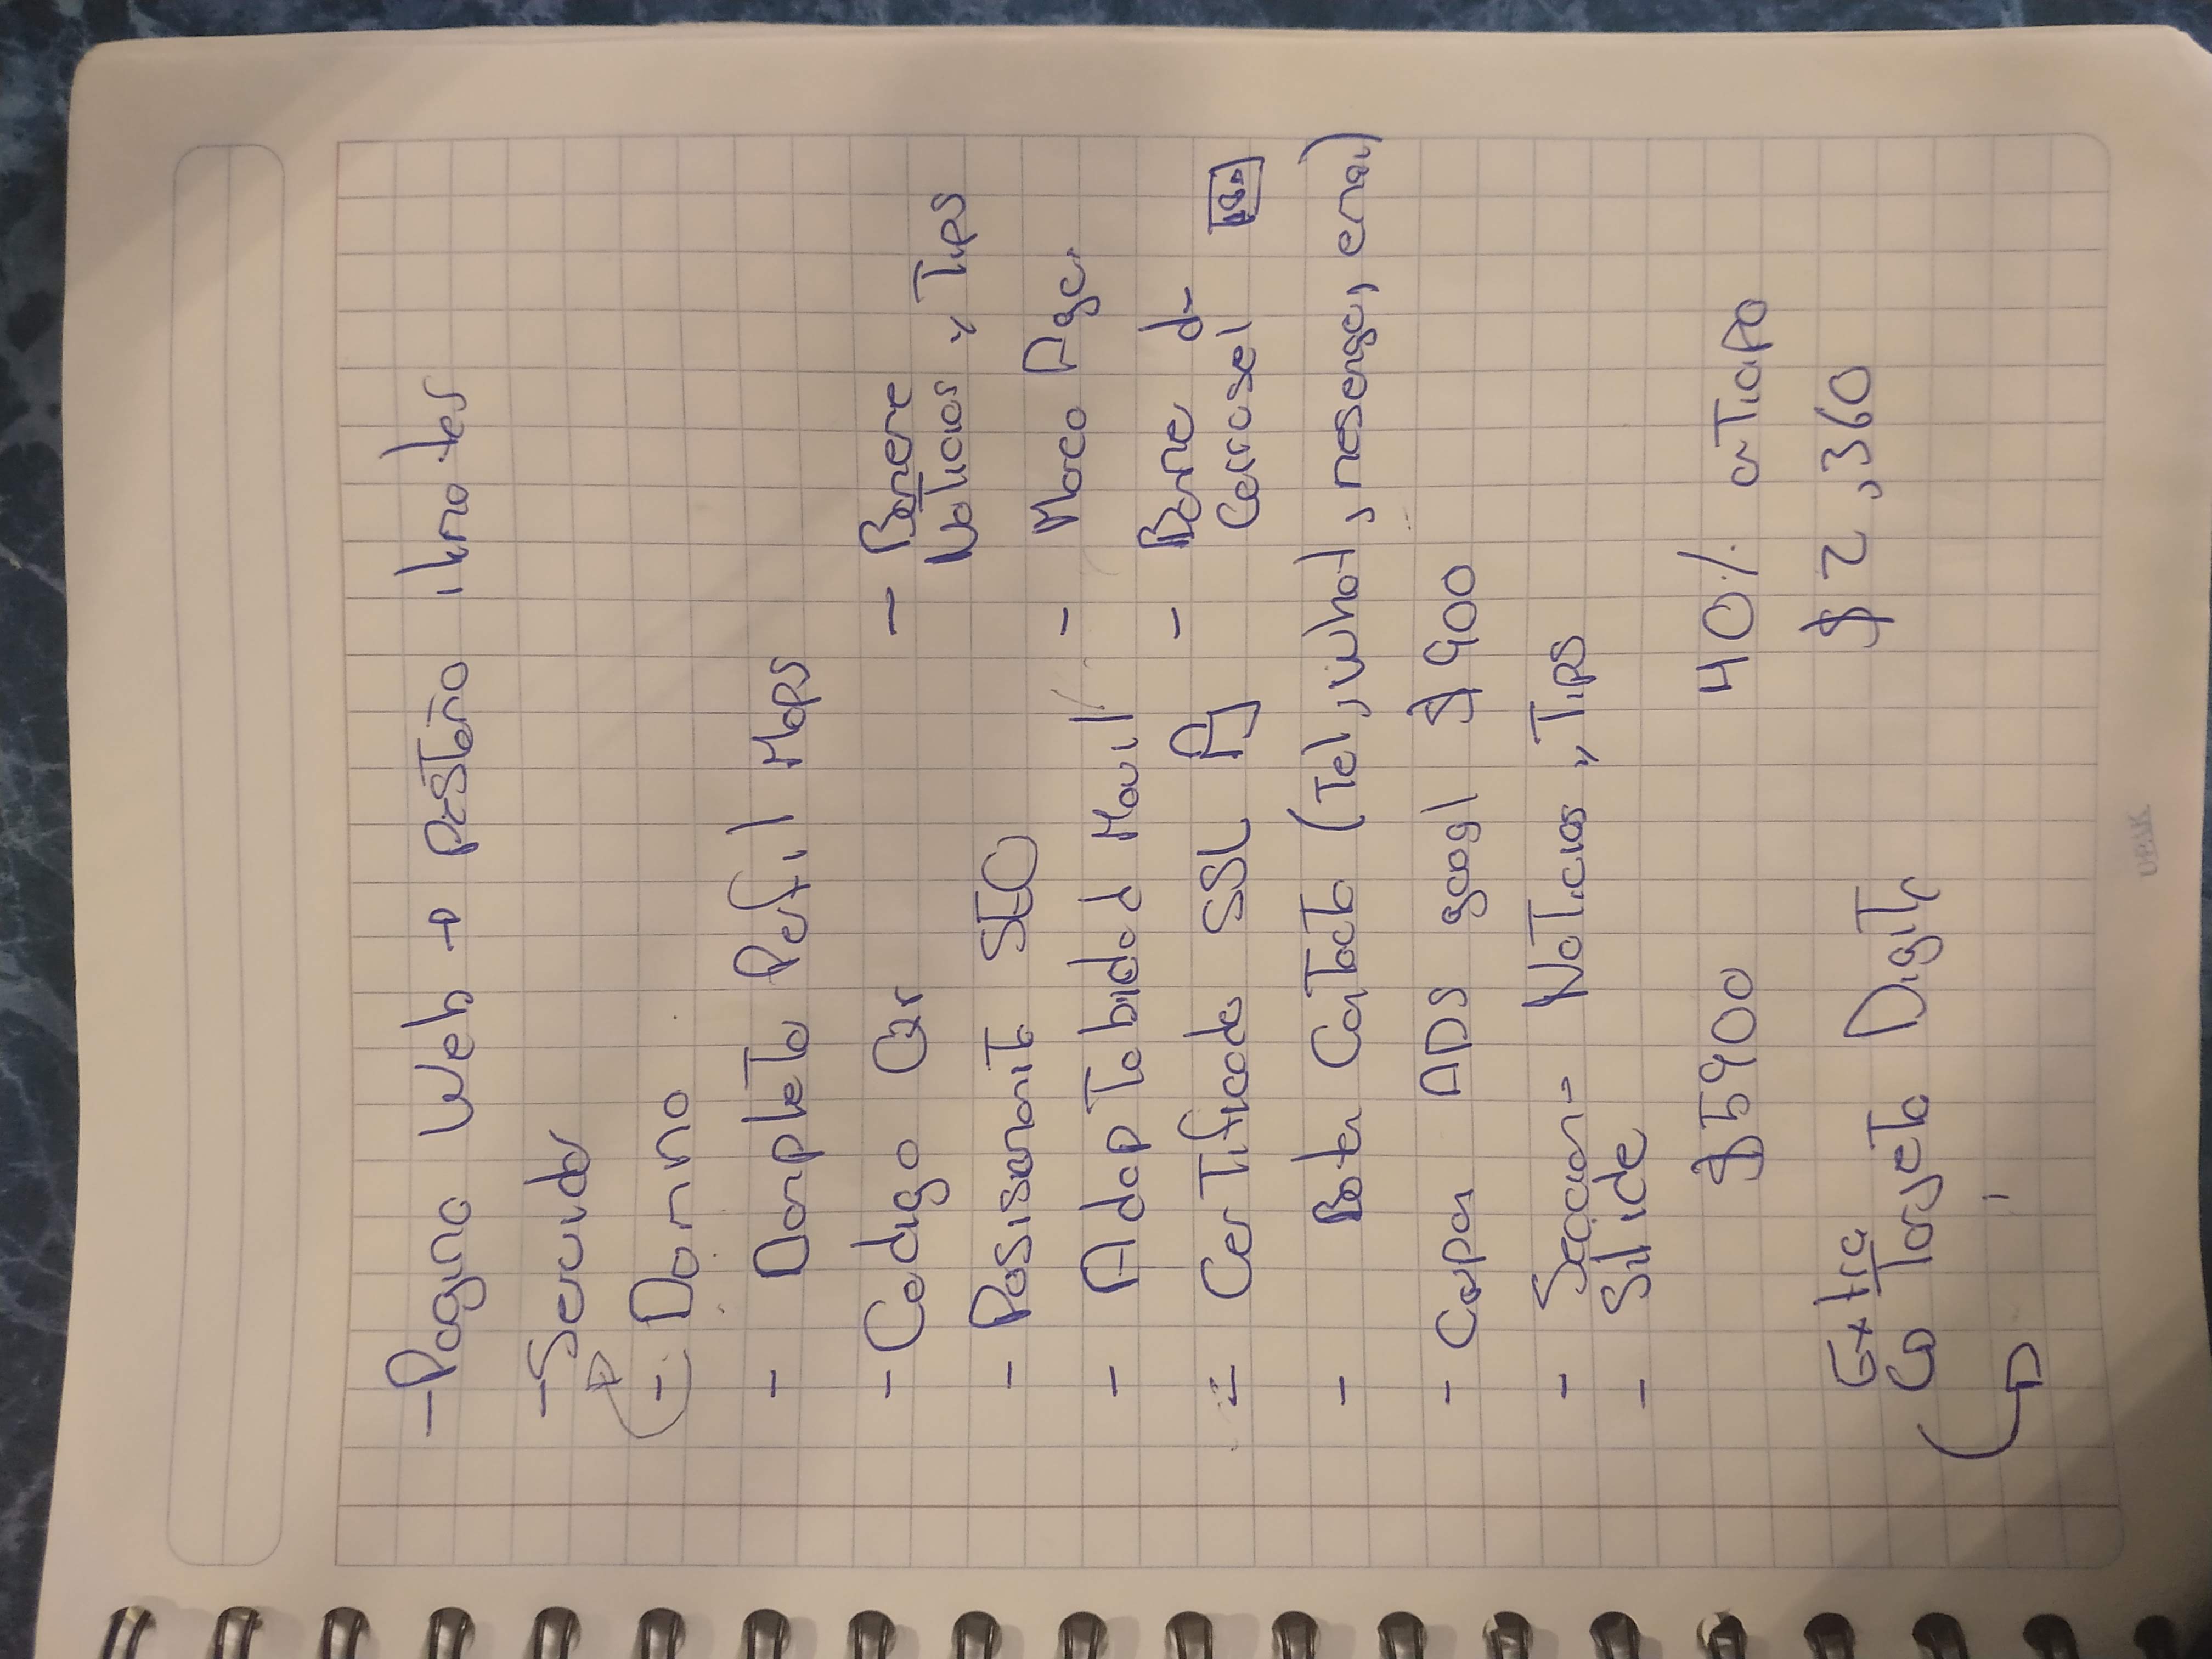 - Pagina Web → pestaña ilimates
- Servidor
- Domino
- Completo Perfil Maps
- Codigo Qr
- Posisonamit SEO
- Adaptabidad Movil
- Certificado SSL
- Boton Contacto (Tel, what, mesenge, emai)
- Cupon ADS googl $900
- Seccion - Noticias y Tips
- Slide
- Banere
Noticias y Tips
- Marco Age.
- Banne de
Carrosel
$5900
40% anticipo
$2,360
Extra
Co Tarjeta Digita
UBAK